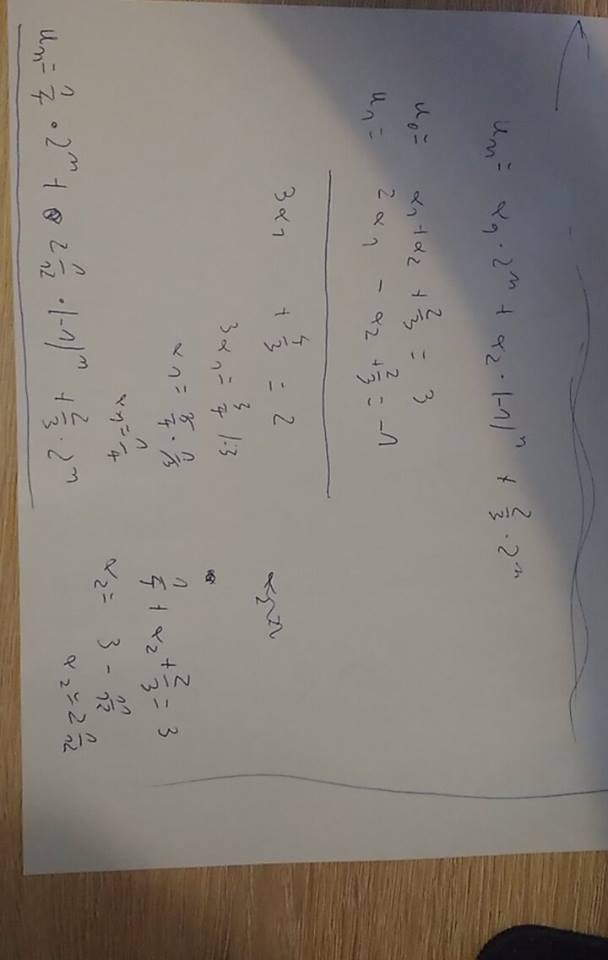 uₙ = α₁ · 2ⁿ + α₂ · (-1)ⁿ + 2/3 · 2ⁿ
u₀ = α₁ + α₂ + 2/3 = 3
u₁ = 2α₁ - α₂ + 2/3 = -1
3α₁ + 4/3 = 2
3α₁ = 3/4 |:3
α₁ = 3/4 · 1/3
α₁ = 1/4
α₂
1/4 + α₂ + 2/3 = 3
α₂ = 3 - 11/12
α₂ = 2 1/12
uₙ = 1/4 · 2ⁿ + 2 1/12 · (-1)ⁿ + 2/3 · 2ⁿ